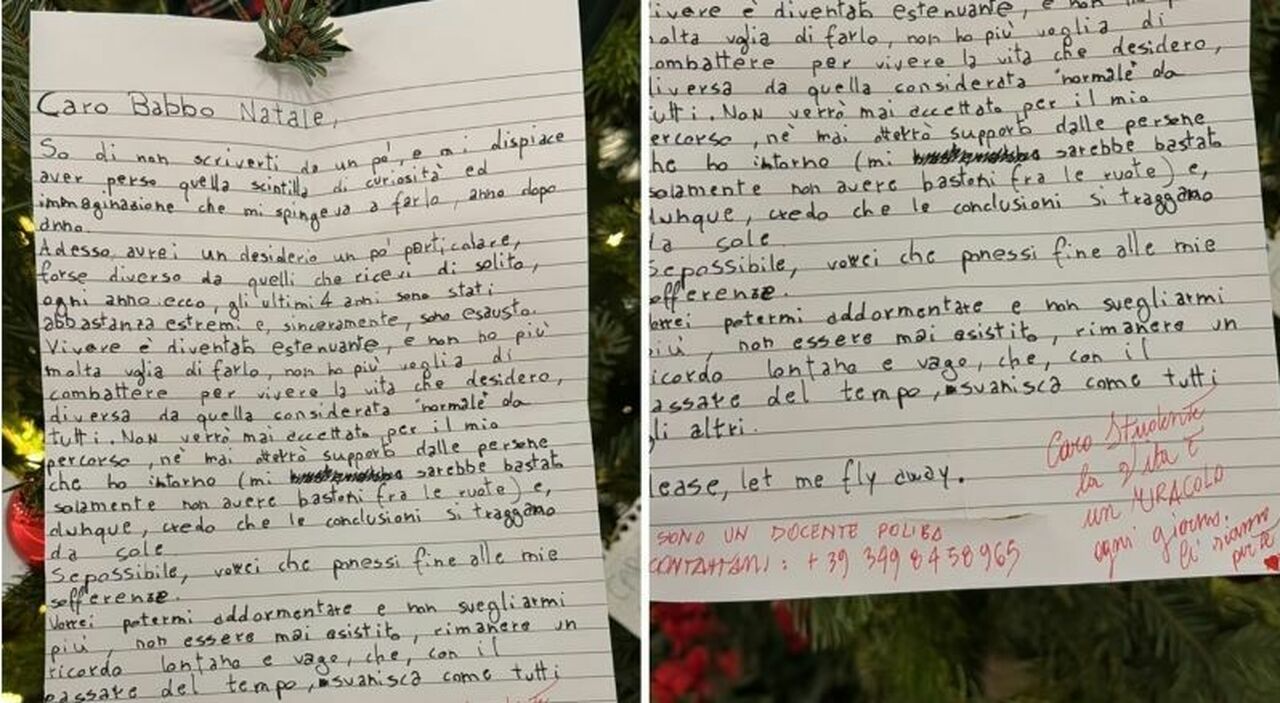 Caro Babbo Natale,
So di non scriverti da un pò, e mi dispiace
aver perso quella scintilla di curiosità ed
immaginazione che mi spingeva a farlo, anno dopo
anno.
Adesso, avrei un desiderio un pò particolare,
forse diverso da quelli che ricevi di solito,
ogni anno. ecco, gli ultimi 4 anni sono stati
abbastanza estremi e, sinceramente, sono esausto.
Vivere è diventato estenuante, e non ho più
molta voglia di farlo, non ho più voglia di
combattere per vivere la vita che desidero,
diversa da quella considerata "normale" da
tutti. Non verrò mai accettato per il mio
percorso, nè mai otterrò supporto dalle persone
che ho intorno (mi sarebbe bastato
solamente non avere bastoni fra le ruote) e,
dunque, credo che le conclusioni si traggano
da sole.
Se possibile, vorrei che ponessi fine alle mie
sofferenze.
Vorrei potermi addormentare e non svegliarmi
più, non essere mai esistito, rimanere un
ricordo lontano e vago, che, con il
passare del tempo, svanisca come tutti
ivere è diventato estenuante, e non ho più
molta voglia di farlo, non ho più voglia di
combattere per vivere la vita che desidero,
diversa da quella considerata "normale" da
tutti. Non verrò mai accettato per il mio
ercorso, nè mai otterrò supporto dalle persone
he ho intorno (mi sarebbe bastato
solamente non avere bastoni fra le ruote) e,
dunque, credo che le conclusioni si traggano
da sole.
Se possibile, vorrei che ponessi fine alle mie
offerenze.
orrei potermi addormentare e non svegliarmi
iù, non essere mai esistito, rimanere un
icordo lontano e vago, che, con il
assare del tempo, svanisca come tutti
gli altri.
lease, let me fly away.
SONO UN DOCENTE POLIBA
CONTATTAMI: +39 349 8458965
Caro Studente
la Vita È
un MIRACOLO
ogni giorno.
Ci siamo
per te